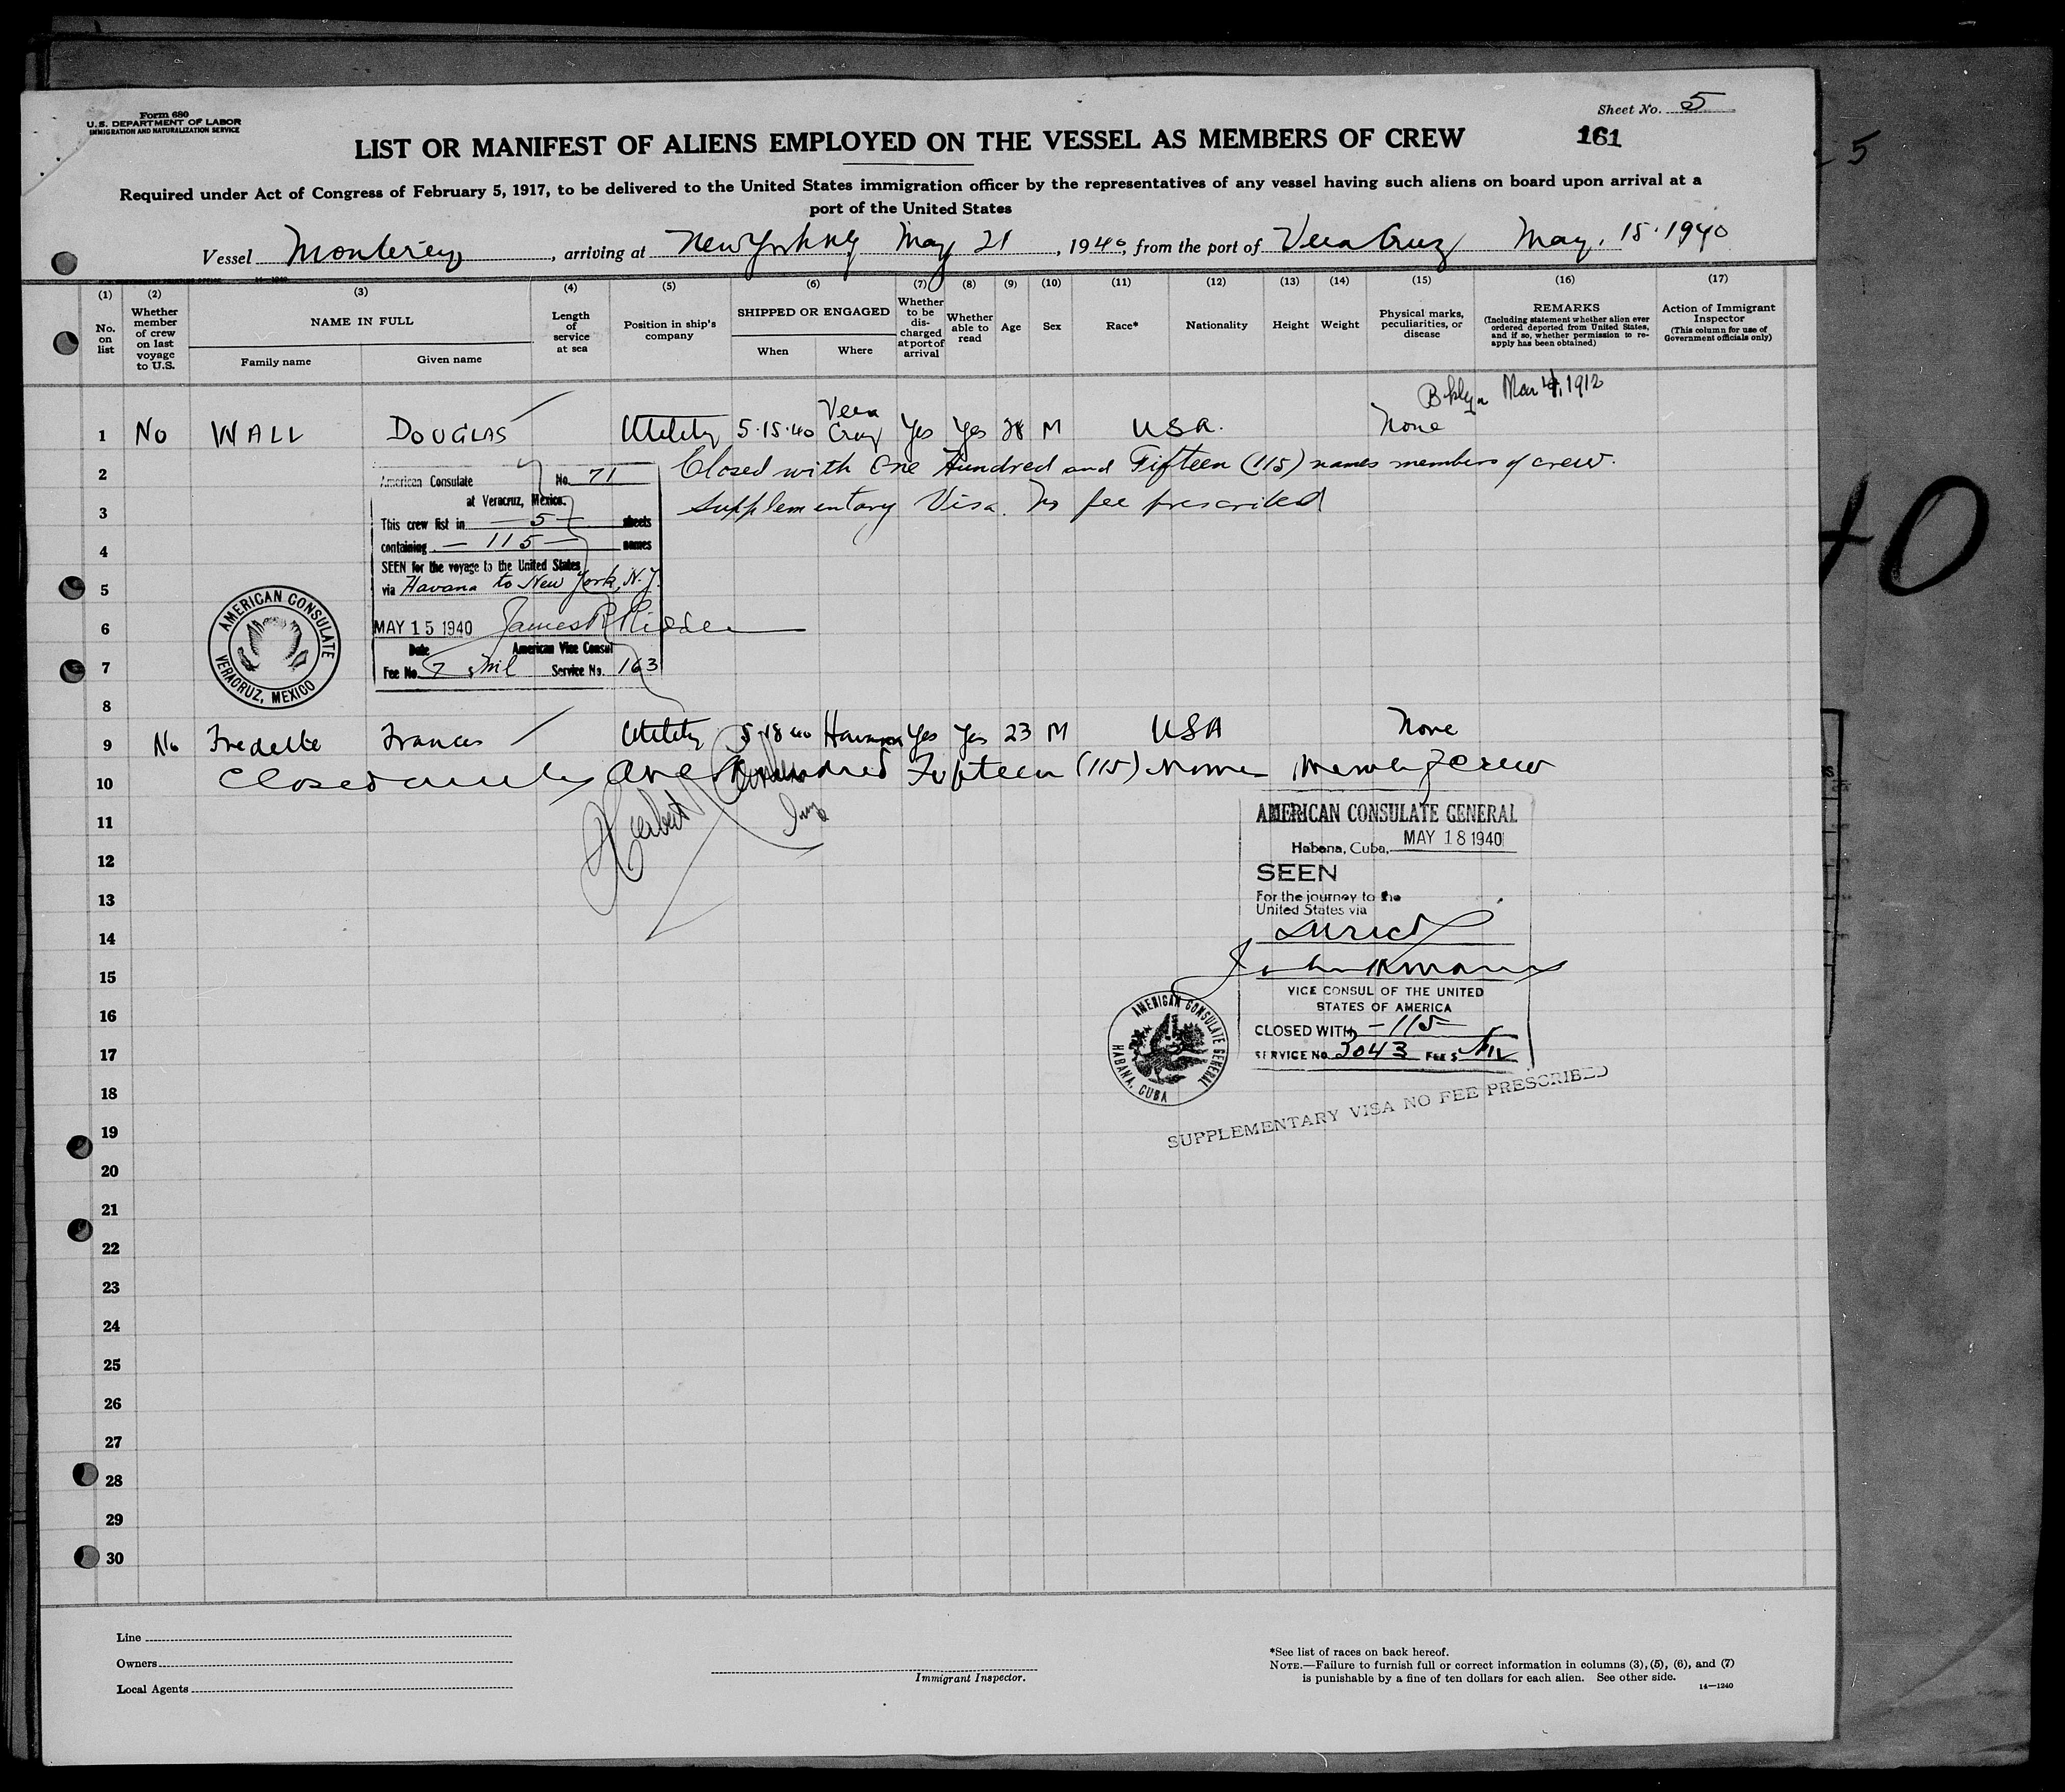 Form 680
U.S. DEPARTMENT OF LABOR
IMMIGRATION AND NATURALIZATION SERVICE
Sheet No. 5
LIST OR MANIFEST OF ALIENS EMPLOYED ON THE VESSEL AS MEMBERS OF CREW
161
5
Required under Act of Congress of February 5, 1917, to be delivered to the United States immigration officer by the representatives of any vessel having such aliens on board upon arrival at a
port of the United States
Vessel Monterey, arriving at New York NY May 21, 1940, from the port of Vera Cruz May, 15. 1940
(1) (2) (3) (4) (5) (6) (7) (8) (9) (10) (11) (12) (13) (14) (15) (16) (17)
No. on list
Whether member of crew on last voyage to U.S.
NAME IN FULL
Family name Given name
Length of service at sea
Position in ship's company
SHIPPED OR ENGAGED
When Where
Whether to be discharged at port of arrival
Whether able to read
Age
Sex
Race*
Nationality
Height
Weight
Physical marks, peculiarities, or disease
REMARKS
(Including statement whether alien ever ordered deported from United States, and if so, whether permission to reapply has been obtained)
Action of Immigrant Inspector
(This column for use of Government officials only)
Bklyn Mar 4, 1912
1 No WALL DOUGLAS Utility 5.15.40 Vera Cruz Yes Yes 28 M USA. None
2 Closed with One Hundred and Fifteen (115) names members of crew.
3 Supplementary Visa. No fee prescribed
American Consulate No. 71
at Veracruz, Mexico.
This crew list in — 5 — sheets
containing — 115 — names
SEEN for the voyage to the United States
via Havana to New York, N.Y.
MAY 15 1940 James R
Date American Vice Consul
Fee No. 7 nil Service No. 163
AMERICAN CONSULATE
VERACRUZ, MEXICO
4
5
6
7
8
40
9 No Fredette Francis Utility 5.18 40 Havana Yes Yes 23 M USA None
10 Closed with One Hundred Fifteen (115) Names Members of crew
Herbert
11
12
13
14
15
16
17
18
19
20
21
22
23
24
25
26
27
28
29
30
AMERICAN CONSULATE GENERAL
Habana, Cuba, MAY 18 1940
SEEN
For the journey to the
United States via
Direct
John
VICE CONSUL OF THE UNITED
STATES OF AMERICA
CLOSED WITH -115-
SERVICE NO. 3043 FEE $ NIL
AMERICAN CONSULATE GENERAL
HABANA, CUBA
SUPPLEMENTARY VISA NO FEE PRESCRIBED
Line
Owners
Local Agents
Immigrant Inspector.
*See list of races on back hereof.
NOTE.—Failure to furnish full or correct information in columns (3), (5), (6), and (7)
is punishable by a fine of ten dollars for each alien. See other side.
14—1240